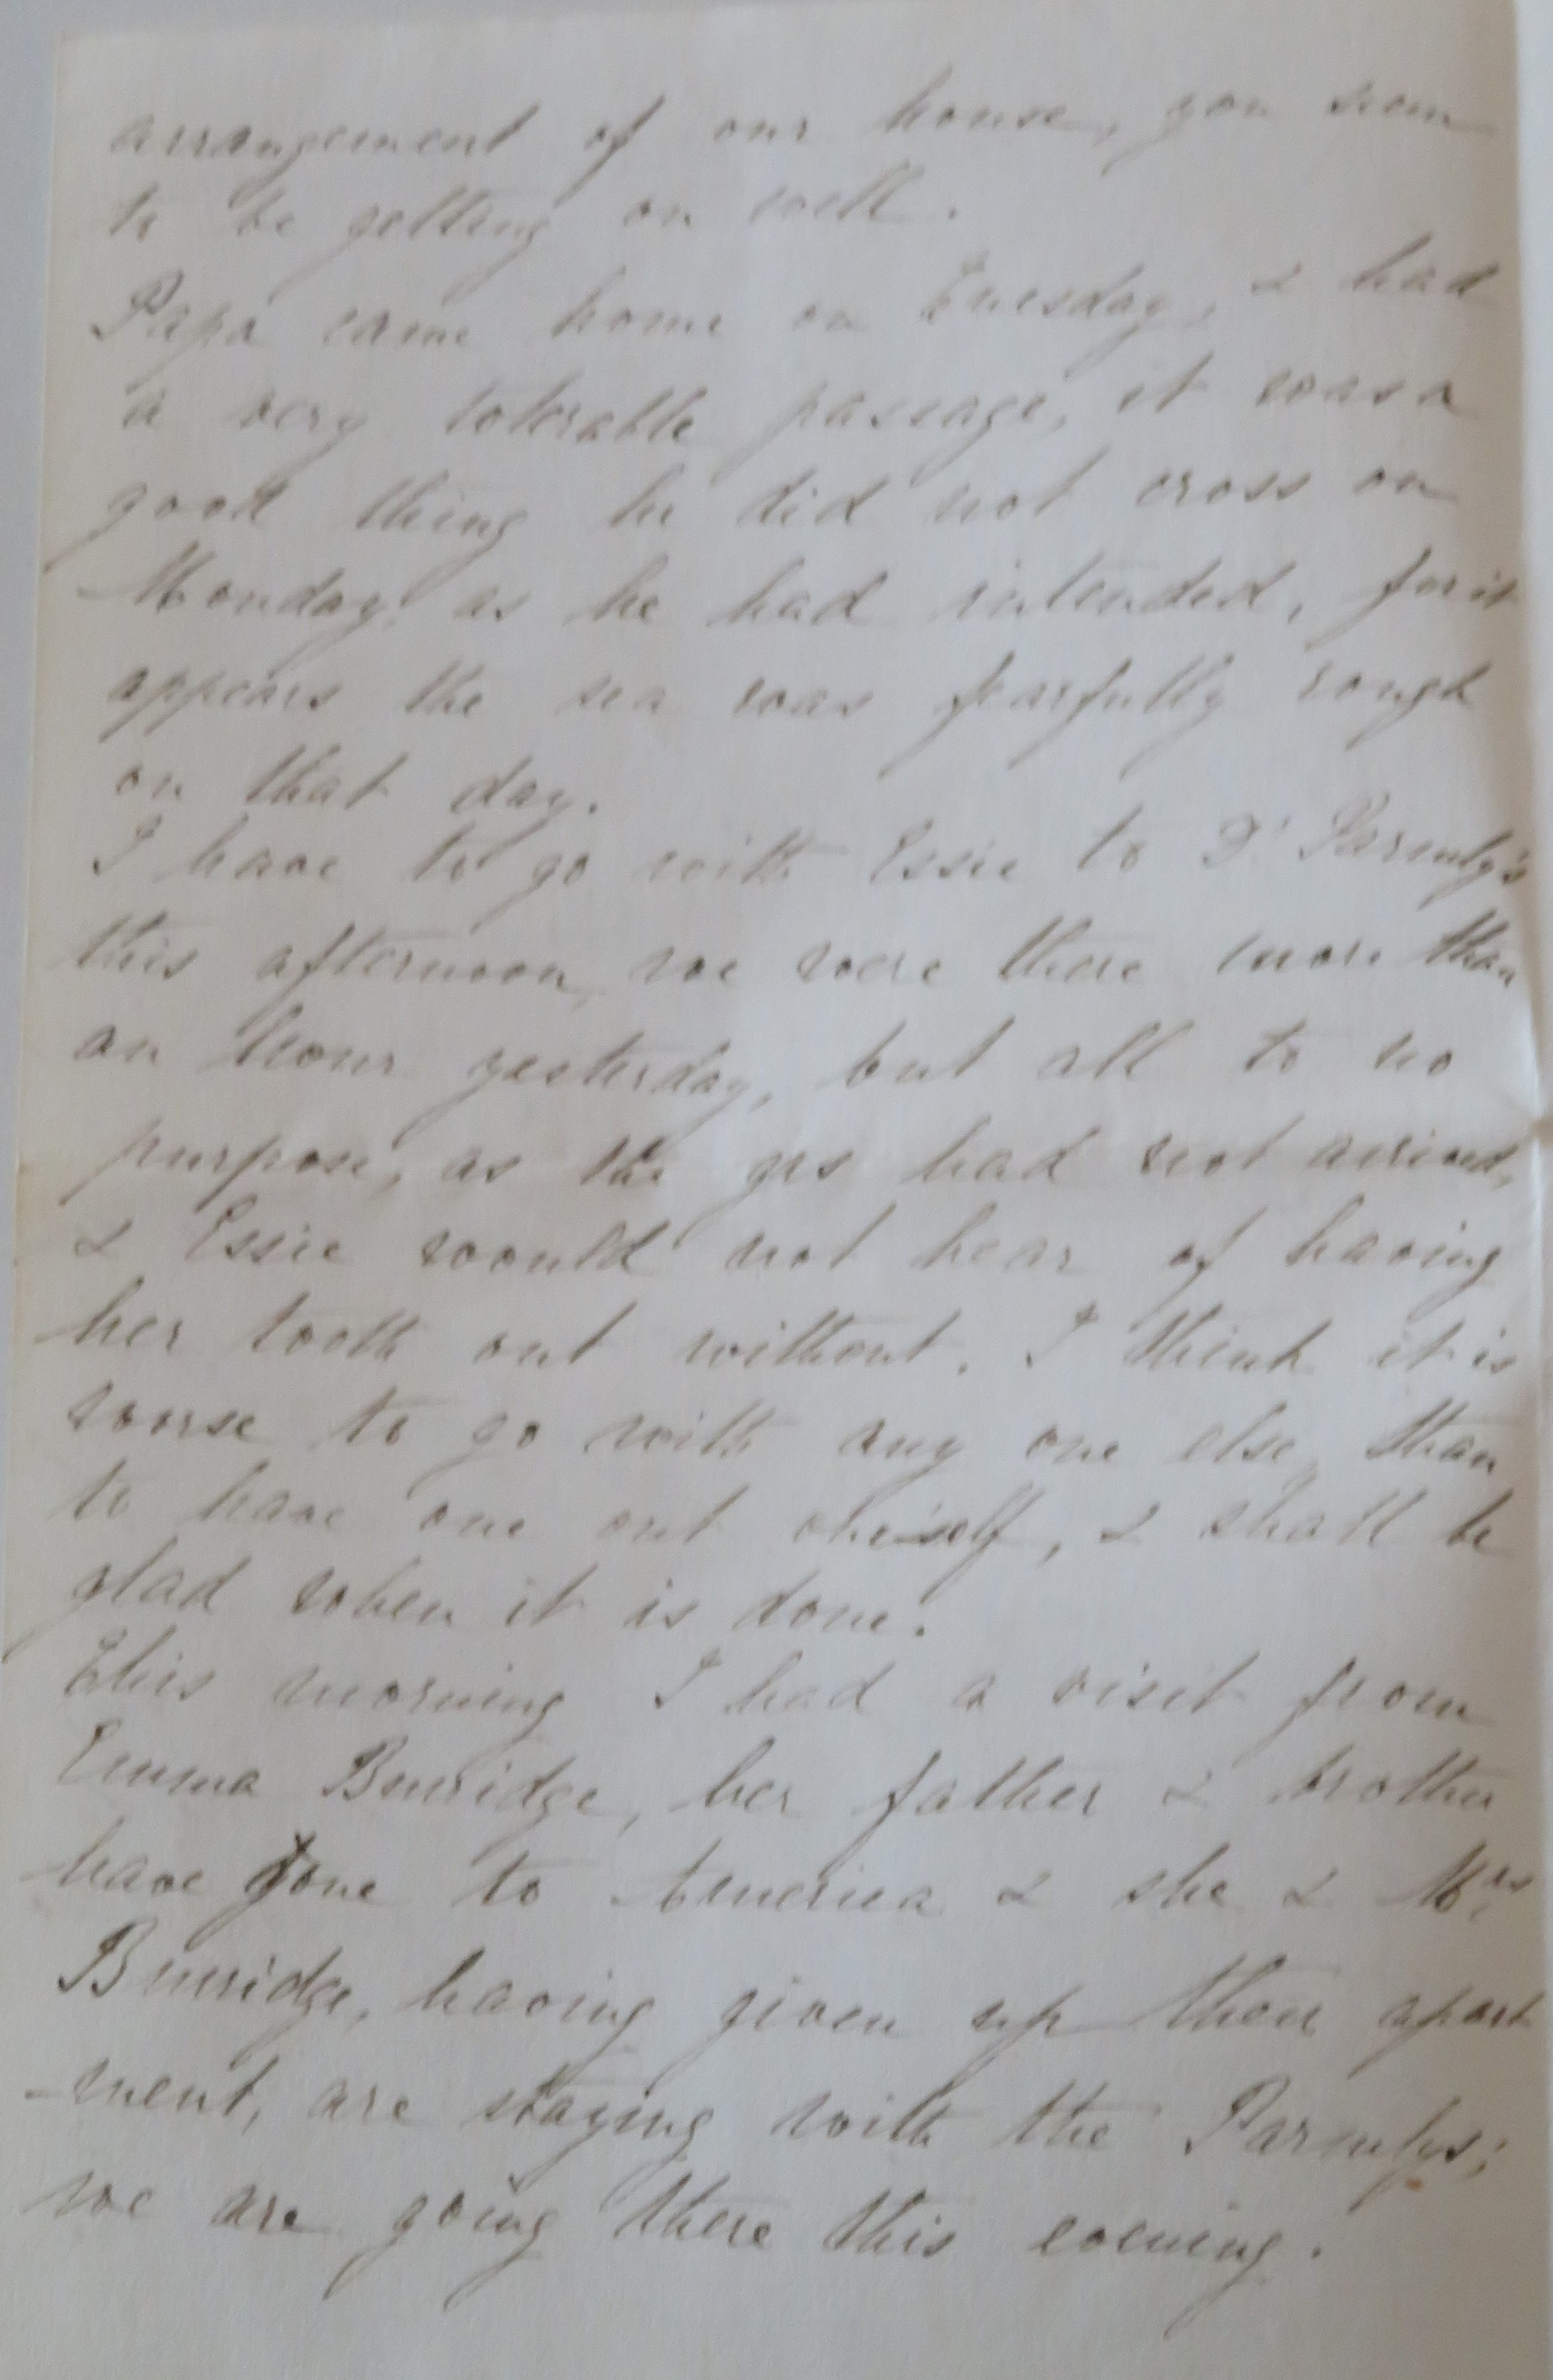 arrangement of our house, you seem
to be getting on well.
Papa came home on Tuesday, & had
a very tolerable passage, it was a
good thing he did not cross on
Monday, as he had intended, for it
appears the sea was fearfully rough
on that day.
I have to go with Essie to Dr Parmly's
this afternoon, we were there more than
an hour yesterday, but all to no
purpose, as the gas had not arrived,
& Essie would not hear of having
her tooth out without. I think it is
worse to go with any one else, than
to have one out oneself, & shall be
glad when it is done.
This morning I had a visit from
Emma Burridge, her father & brother
have gone to America & she & Mrs
Burridge, having given up their apart
-ment, are staying with the Parmlys;
we are going there this evening.